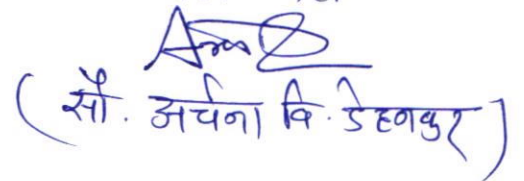 (सौ. अर्चना वि. डेहनकुर)